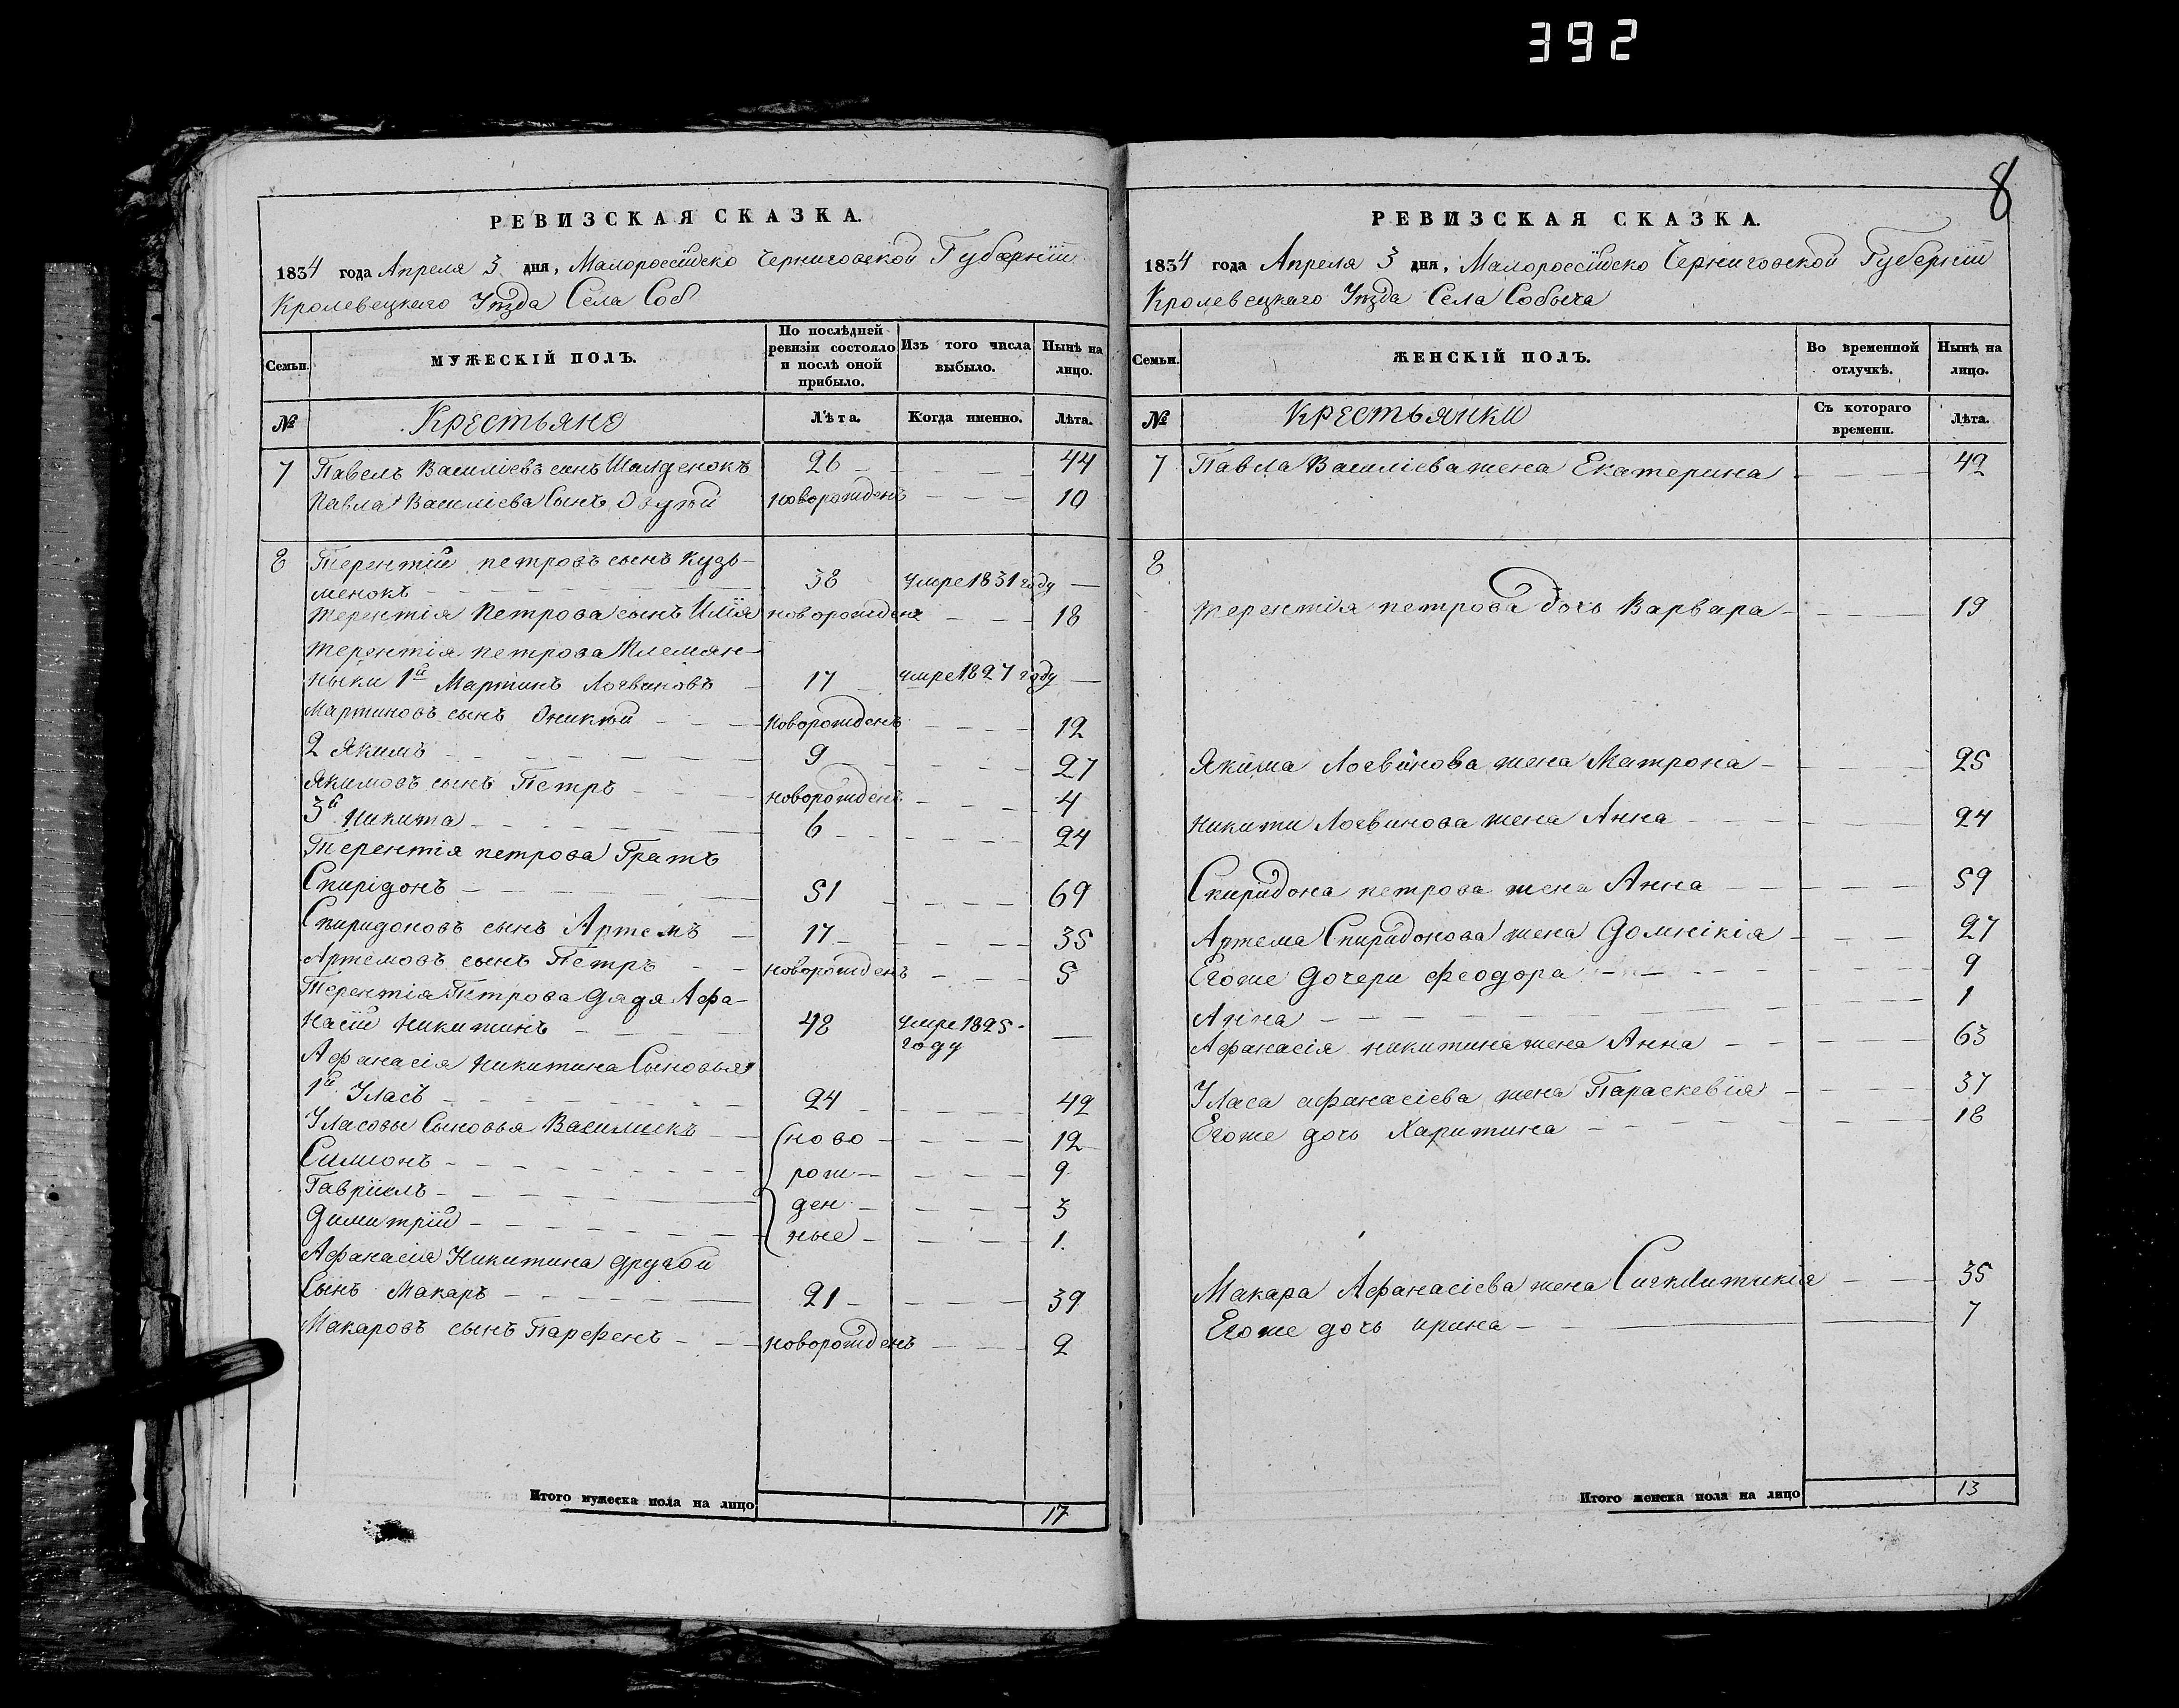 392
РЕВИЗСКАЯ СКАЗКА.
1834 года Апреля 3 дня, Малороссійско Черниговской Губерніи
Кролевецкаго Уѣзда Села Соб
Семьи.
МУЖЕСКІЙ ПОЛЪ.
По послѣдней ревизіи состояло и послѣ оной прибыло.
Изъ того числа выбыло.
Нынѣ на лицо.
№ Крестьяне Лѣта. Когда именно. Лѣта.
7 Павелъ Василіевъ сынъ 26 44
Павла Василіева Сынъ новорожденъ 10
8 Терентій петровъ сынъ Кузь-
менокъ 38 умре 1831 году
терентія Петрова сынъ Илія новорожденъ 18
терентія петрова Племян-
ныки 1й Мартинъ Логвиновъ 17 умре 1827 году
Мартиновъ сынъ Оникѣй новорожденъ 12
2 Якимъ 9 27
Якимовъ сынъ Петръ новорожденъ 4
3й Никита 6 24
Терентія петрова Братъ
Спирідонъ 51 69
Спиридоновъ сынъ Артемъ 17 35
Артемовъ сынъ Петръ новорожденъ 5
Терентія Петрова Дядя Афа-
насій Никитинъ 48 умре 1825 году
Афанасія Никитина Сыновья
1й Уласъ 24 42
Уласовы Сыновья Василискъ ново 12
Симионъ рож 9
Гавріилъ ден 3
Димитрій ные 1.
Афанасія Никитина другой
Сынъ Макаръ 21 39
Макаровъ сынъ Парфенъ новорожденъ 2
Итого мужеска пола на лицо 17
8
РЕВИЗСКАЯ СКАЗКА.
1834 года Апреля 3 дня, Малороссійско Черниговской Губерніи
Кролевецкаго Уѣзда Села Собыча
Семьи.
ЖЕНСКІЙ ПОЛЪ.
Во временной отлучкѣ.
Нынѣ на лицо.
№ Крестьянки Съ котораго времени. Лѣта.
7 Павла Василіева жена Екатерина 42
8
терентія петрова дочь Варвара 19
Якима Логвинова жена Матрона 25
Никити Логвинова жена Анна 24
Спиридона петрова жена Анна 59
Артема Спиридонова жена Домнікія 27
Егоже Дочери Феодора 9
Анна 1
Афанасія никитина жена Анна 63
Уласа афанасіева жена Параскевія 37
Егоже дочь Харитина 18
Макара Афанасіева жена 35
Егоже дочь ирина 7
Итого женска пола на лицо 13